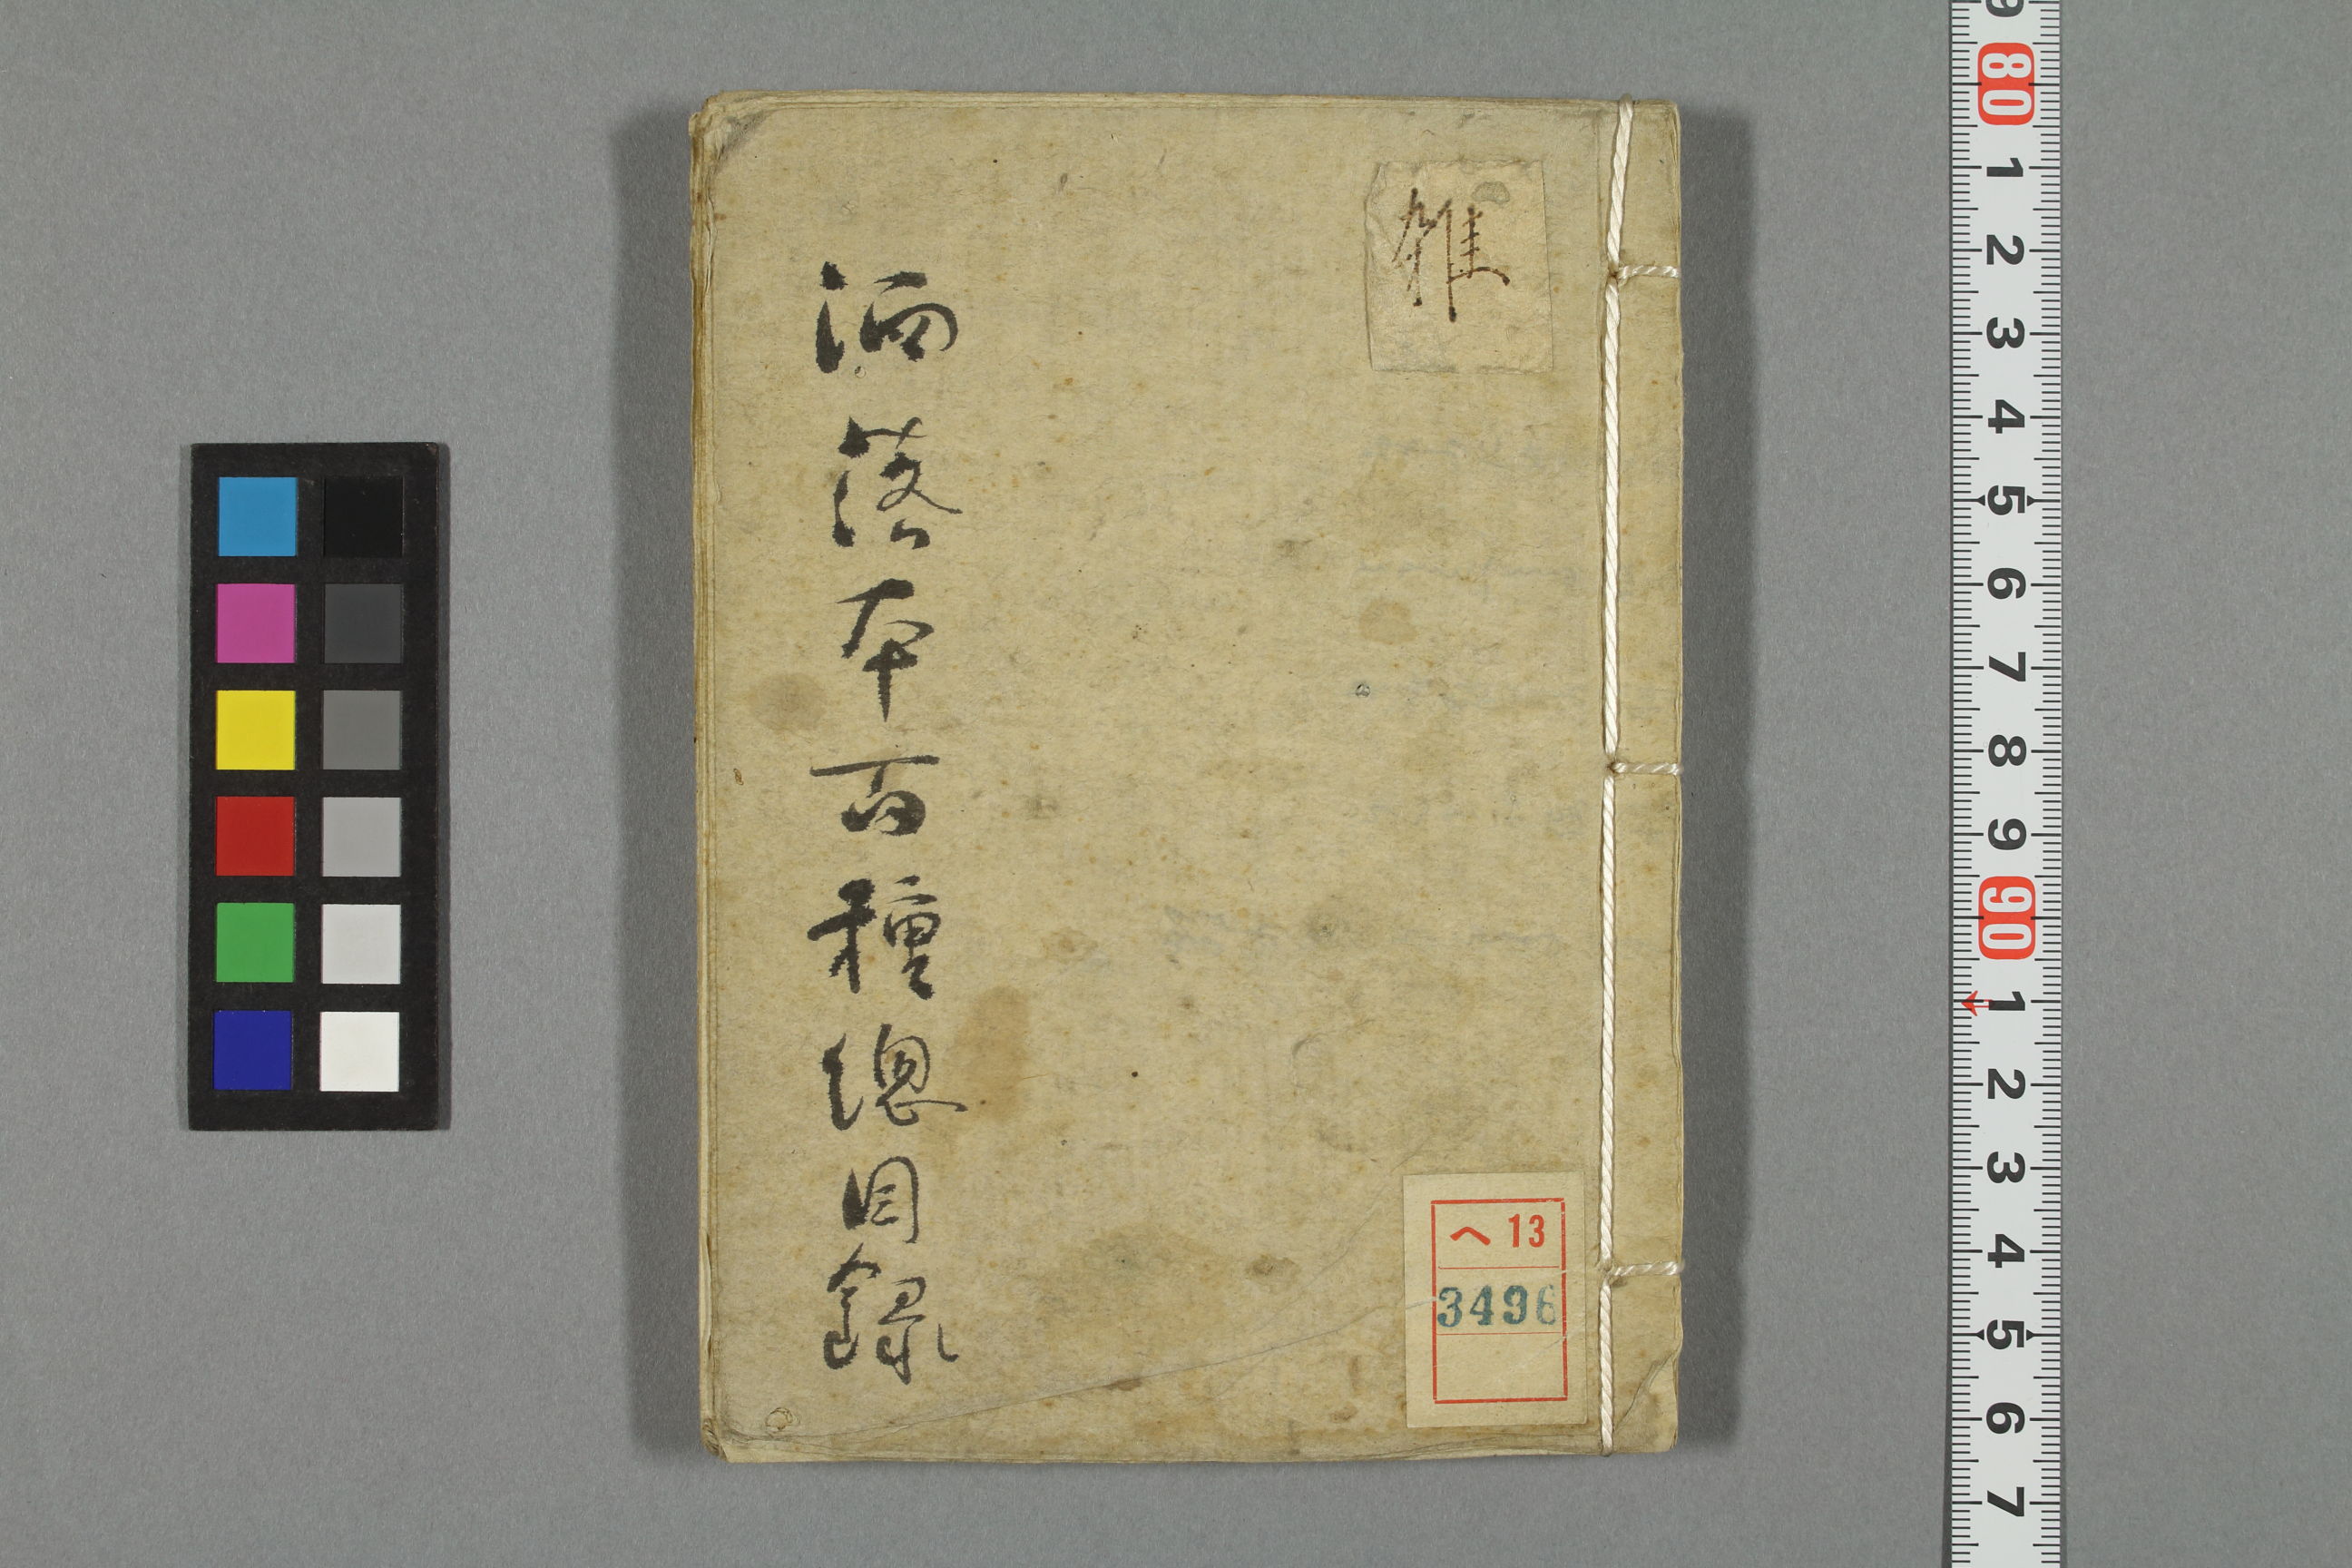 雑
洒落本百種總目録
ヘ 13
3496
9
80
1
2
3
4
5
6
7
8
9
90
1
2
3
4
5
6
7